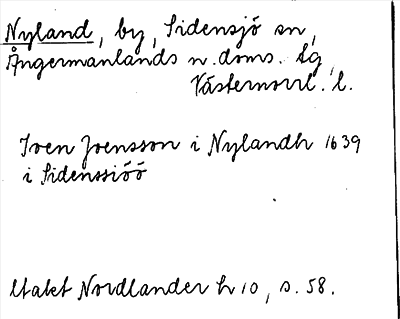 Nyland, by, Sidensjö sn,
Ångermanlands n. doms. tg,
Västernorrl. l.
Sven Jvensson i Nylandh 1639
i Sidenssiöö
Utakt Nordlander h 10, s. 58.